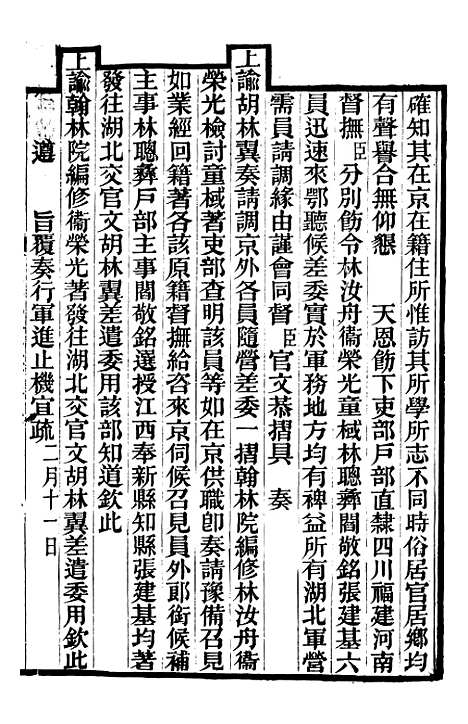 確知其在京在籍住所惟訪其所學所志不同時俗居官居鄉均
有聲譽合無仰懇　　天恩飭下吏部戶部直隸四川福建河南
督撫臣分別飭令林汝舟衞榮光童棫林聰彝閻敬銘張建基六
員迅速來鄂聽候差委實於軍務地方均有裨益所有湖北軍營
需員請調緣由謹會同督臣官文恭摺具　奏
上諭胡林翼奏請調京外各員隨營差委一摺翰林院編修林汝舟衞
榮光檢討童棫著吏部查明該員等如在京供職卽奏請豫備召見
如業經回籍著各該原籍督撫給咨來京伺候召見員外郎銜候補
主事林聰彝戶部主事閻敬銘選授江西奉新縣知縣張建基均著
發往湖北交官文胡林翼差遣委用該部知道欽此
上諭翰林院編修衞榮光著發往湖北交官文胡林翼差遣委用欽此
遵　旨覆奏行軍進止機宜疏二月十一日